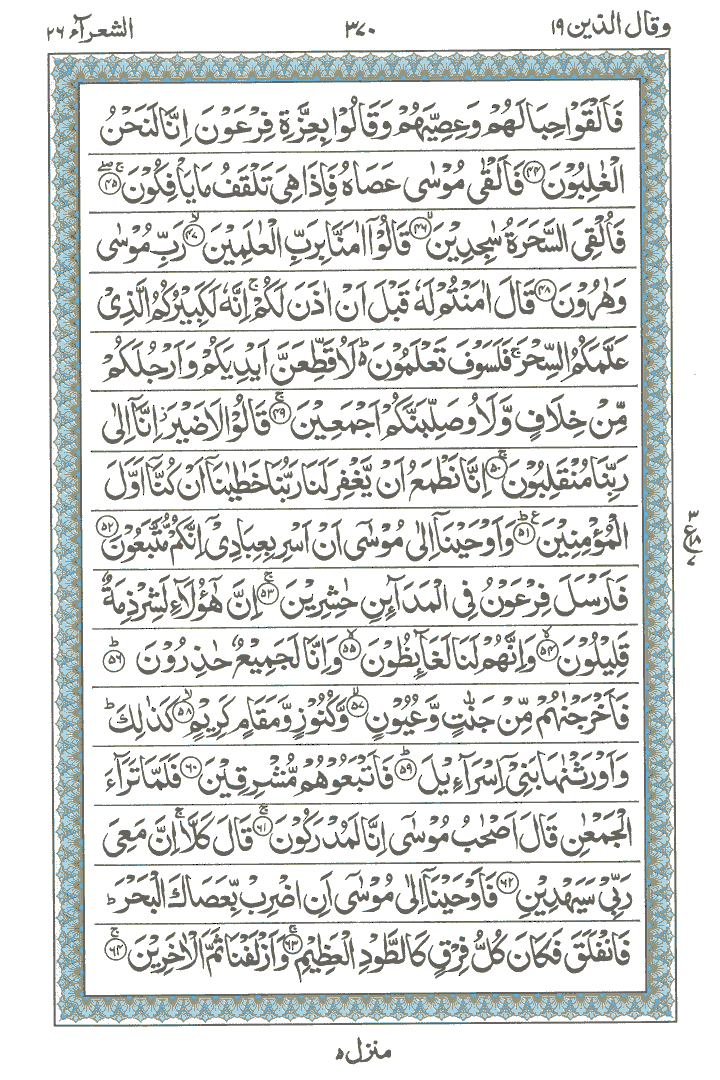 وقال الذين ١٩ ٣٧٠ الشعرآء ٢٦
فَاَلْقَوْا حِبَالَهُمْ وَعِصِيَّهُمْ وَقَالُوْا بِعِزَّةِ فِرْعَوْنَ اِنَّا لَنَحْنُ
الْغٰلِبُوْنَ ﴿۴۴﴾ فَاَلْقٰى مُوْسٰى عَصَاهُ فَاِذَا هِىَ تَلْقَفُ مَا يَاْفِكُوْنَ ۚۖ ﴿۴۵﴾
فَاُلْقِىَ السَّحَرَةُ سٰجِدِيْنَ ۙ﴿۴۶﴾ قَالُوْۤا اٰمَنَّا بِرَبِّ الْعٰلَمِيْنَ ۙ﴿۴۷﴾ رَبِّ مُوْسٰى
وَهٰرُوْنَ ﴿۴۸﴾ قَالَ اٰمَنْتُمْ لَهٗ قَبْلَ اَنْ اٰذَنَ لَكُمْ ۚ اِنَّهٗ لَكَبِيْرُكُمُ الَّذِىْ
عَلَّمَكُمُ السِّحْرَ ۚ فَلَسَوْفَ تَعْلَمُوْنَ ؕ۬ لَاُقَطِّعَنَّ اَيْدِيَكُمْ وَاَرْجُلَكُمْ
مِّنْ خِلَافٍ وَّلَاُوصَلِّبَنَّكُمْ اَجْمَعِيْنَ ۚ﴿۴۹﴾ قَالُوْا لَا ضَيْرَ ؗ اِنَّاۤ اِلٰى
رَبِّنَا مُنْقَلِبُوْنَ ۚ﴿۵۰﴾ اِنَّا نَطْمَعُ اَنْ يَّغْفِرَ لَنَا رَبُّنَا خَطٰيٰنَاۤ اَنْ كُنَّاۤ اَوَّلَ
الْمُؤْمِنِيْنَ ؕ﴿۵۱﴾ ع وَاَوْحَيْنَاۤ اِلٰى مُوْسٰٓى اَنْ اَسْرِ بِعِبَادِىْۤ اِنَّكُمْ مُّتَّبَعُوْنَ ﴿۵۲﴾
فَاَرْسَلَ فِرْعَوْنُ فِى الْمَدَآئِنِ حٰشِرِيْنَ ۚ﴿۵۳﴾ اِنَّ هٰٓؤُلَآءِ لَشِرْذِمَةٌ
قَلِيْلُوْنَ ۙ﴿۵۴﴾ وَاِنَّهُمْ لَنَا لَغَآئِظُوْنَ ۙ﴿۵۵﴾ وَاِنَّا لَجَمِيْعٌ حٰذِرُوْنَ ؕ﴿۵۶﴾
فَاَخْرَجْنٰهُمْ مِّنْ جَنّٰتٍ وَّعُيُوْنٍ ۙ﴿۵۷﴾ وَّكُنُوْزٍ وَّمَقَامٍ كَرِيْمٍ ۙ﴿۵۸﴾ كَذٰلِكَ ؕ
وَاَوْرَثْنٰهَا بَنِىْۤ اِسْرَآءِيْلَ ؕ﴿۵۹﴾ فَاَتْبَعُوْهُمْ مُّشْرِقِيْنَ ﴿۶۰﴾ فَلَمَّا تَرَآءَ
الْجَمْعٰنِ قَالَ اَصْحٰبُ مُوْسٰٓى اِنَّا لَمُدْرَكُوْنَ ۚ﴿۶۱﴾ قَالَ كَلَّا ۚ اِنَّ مَعِىَ
رَبِّىْ سَيَهْدِيْنِ ﴿۶۲﴾ فَاَوْحَيْنَاۤ اِلٰى مُوْسٰٓى اَنِ اضْرِبْ بِّعَصَاكَ الْبَحْرَ ؕ
فَانْفَلَقَ فَكَانَ كُلُّ فِرْقٍ كَالطَّوْدِ الْعَظِيْمِ ۚ﴿۶۳﴾ وَاَزْلَفْنَا ثَمَّ الْاٰخَرِيْنَ ۚ﴿۶۴﴾
منزل ٥